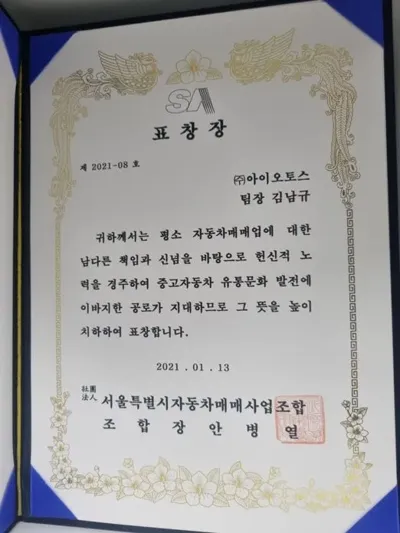 SA
표창장
제 2021-08 호
㈜아이오토스
팀장 김남규
귀하께서는 평소 자동차매매업에 대한
남다른 책임과 신념을 바탕으로 헌신적 노
력을 경주하여 중고자동차 유통문화 발전에
이바지한 공로가 지대하므로 그 뜻을 높이
치하하여 표창합니다.
2021.01.13
社團法人 서울특별시자동차매매사업조합
조합장 안병열